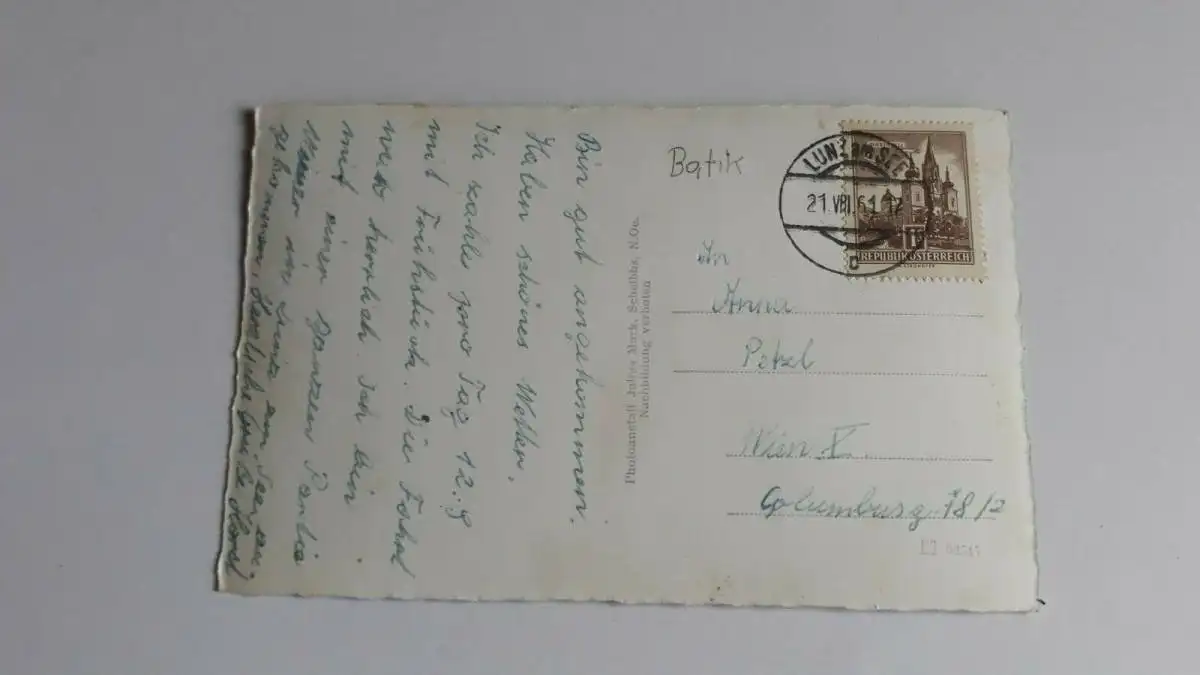 Bin gut angekommen.
Haben schönes Wetter.
Ich zahle pro Tag 12.-S
mit Frühstück. Die Fahrt
war herrlich. Ich bin
mit einer ganzen Partie
Wiener in Lunz am See an-
gekommen. Herzliche Grüße Hansl
Photoanstalt Julius Mark, Scheibbs, N.Oe.
Nachbildung verboten
Batik
LUNZ AM SEE
21.VIII.61 12
c
REPUBLIK ÖSTERREICH
An
Anna
Petzl
Wien X.
Columbusg. 18/2